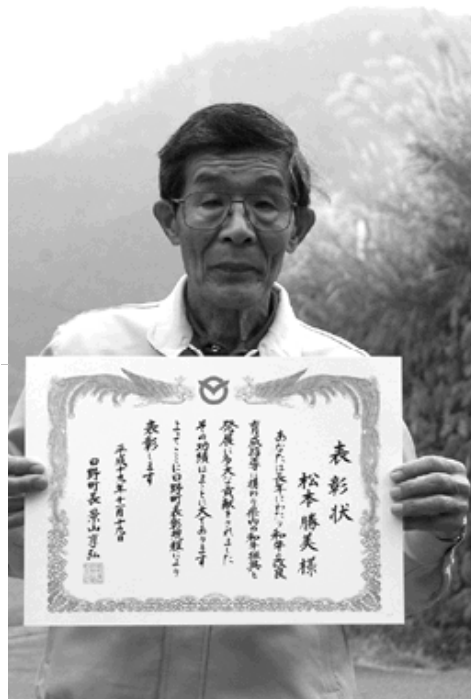 表彰状
松本勝美様
あなたは長年にわたり和牛改良
育成指導に携わり県内の和牛振興と
発展に多大な貢献をされました
その功績はまことに大であります
よってここに日野町表彰規程により
表彰します
平成十九年十一月十九日
日野町長 景山享弘